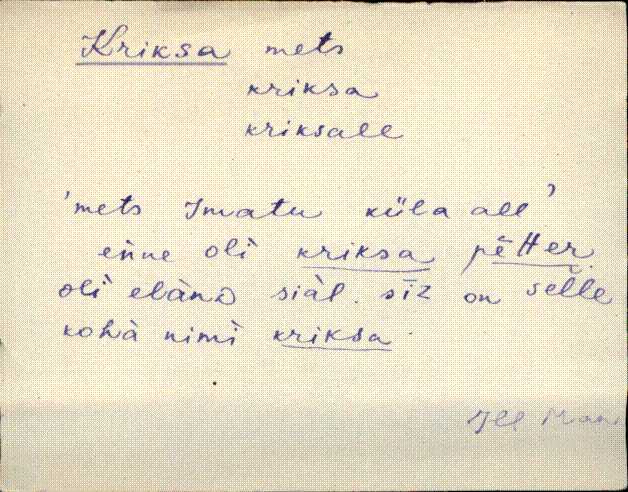 Kriksa mets
kriksa
kriksall
'mets Imatu küla all'
enne oli kriksa pètter
oli elànD siàl. sīz on selle
kohà nimì kriksa
Jll